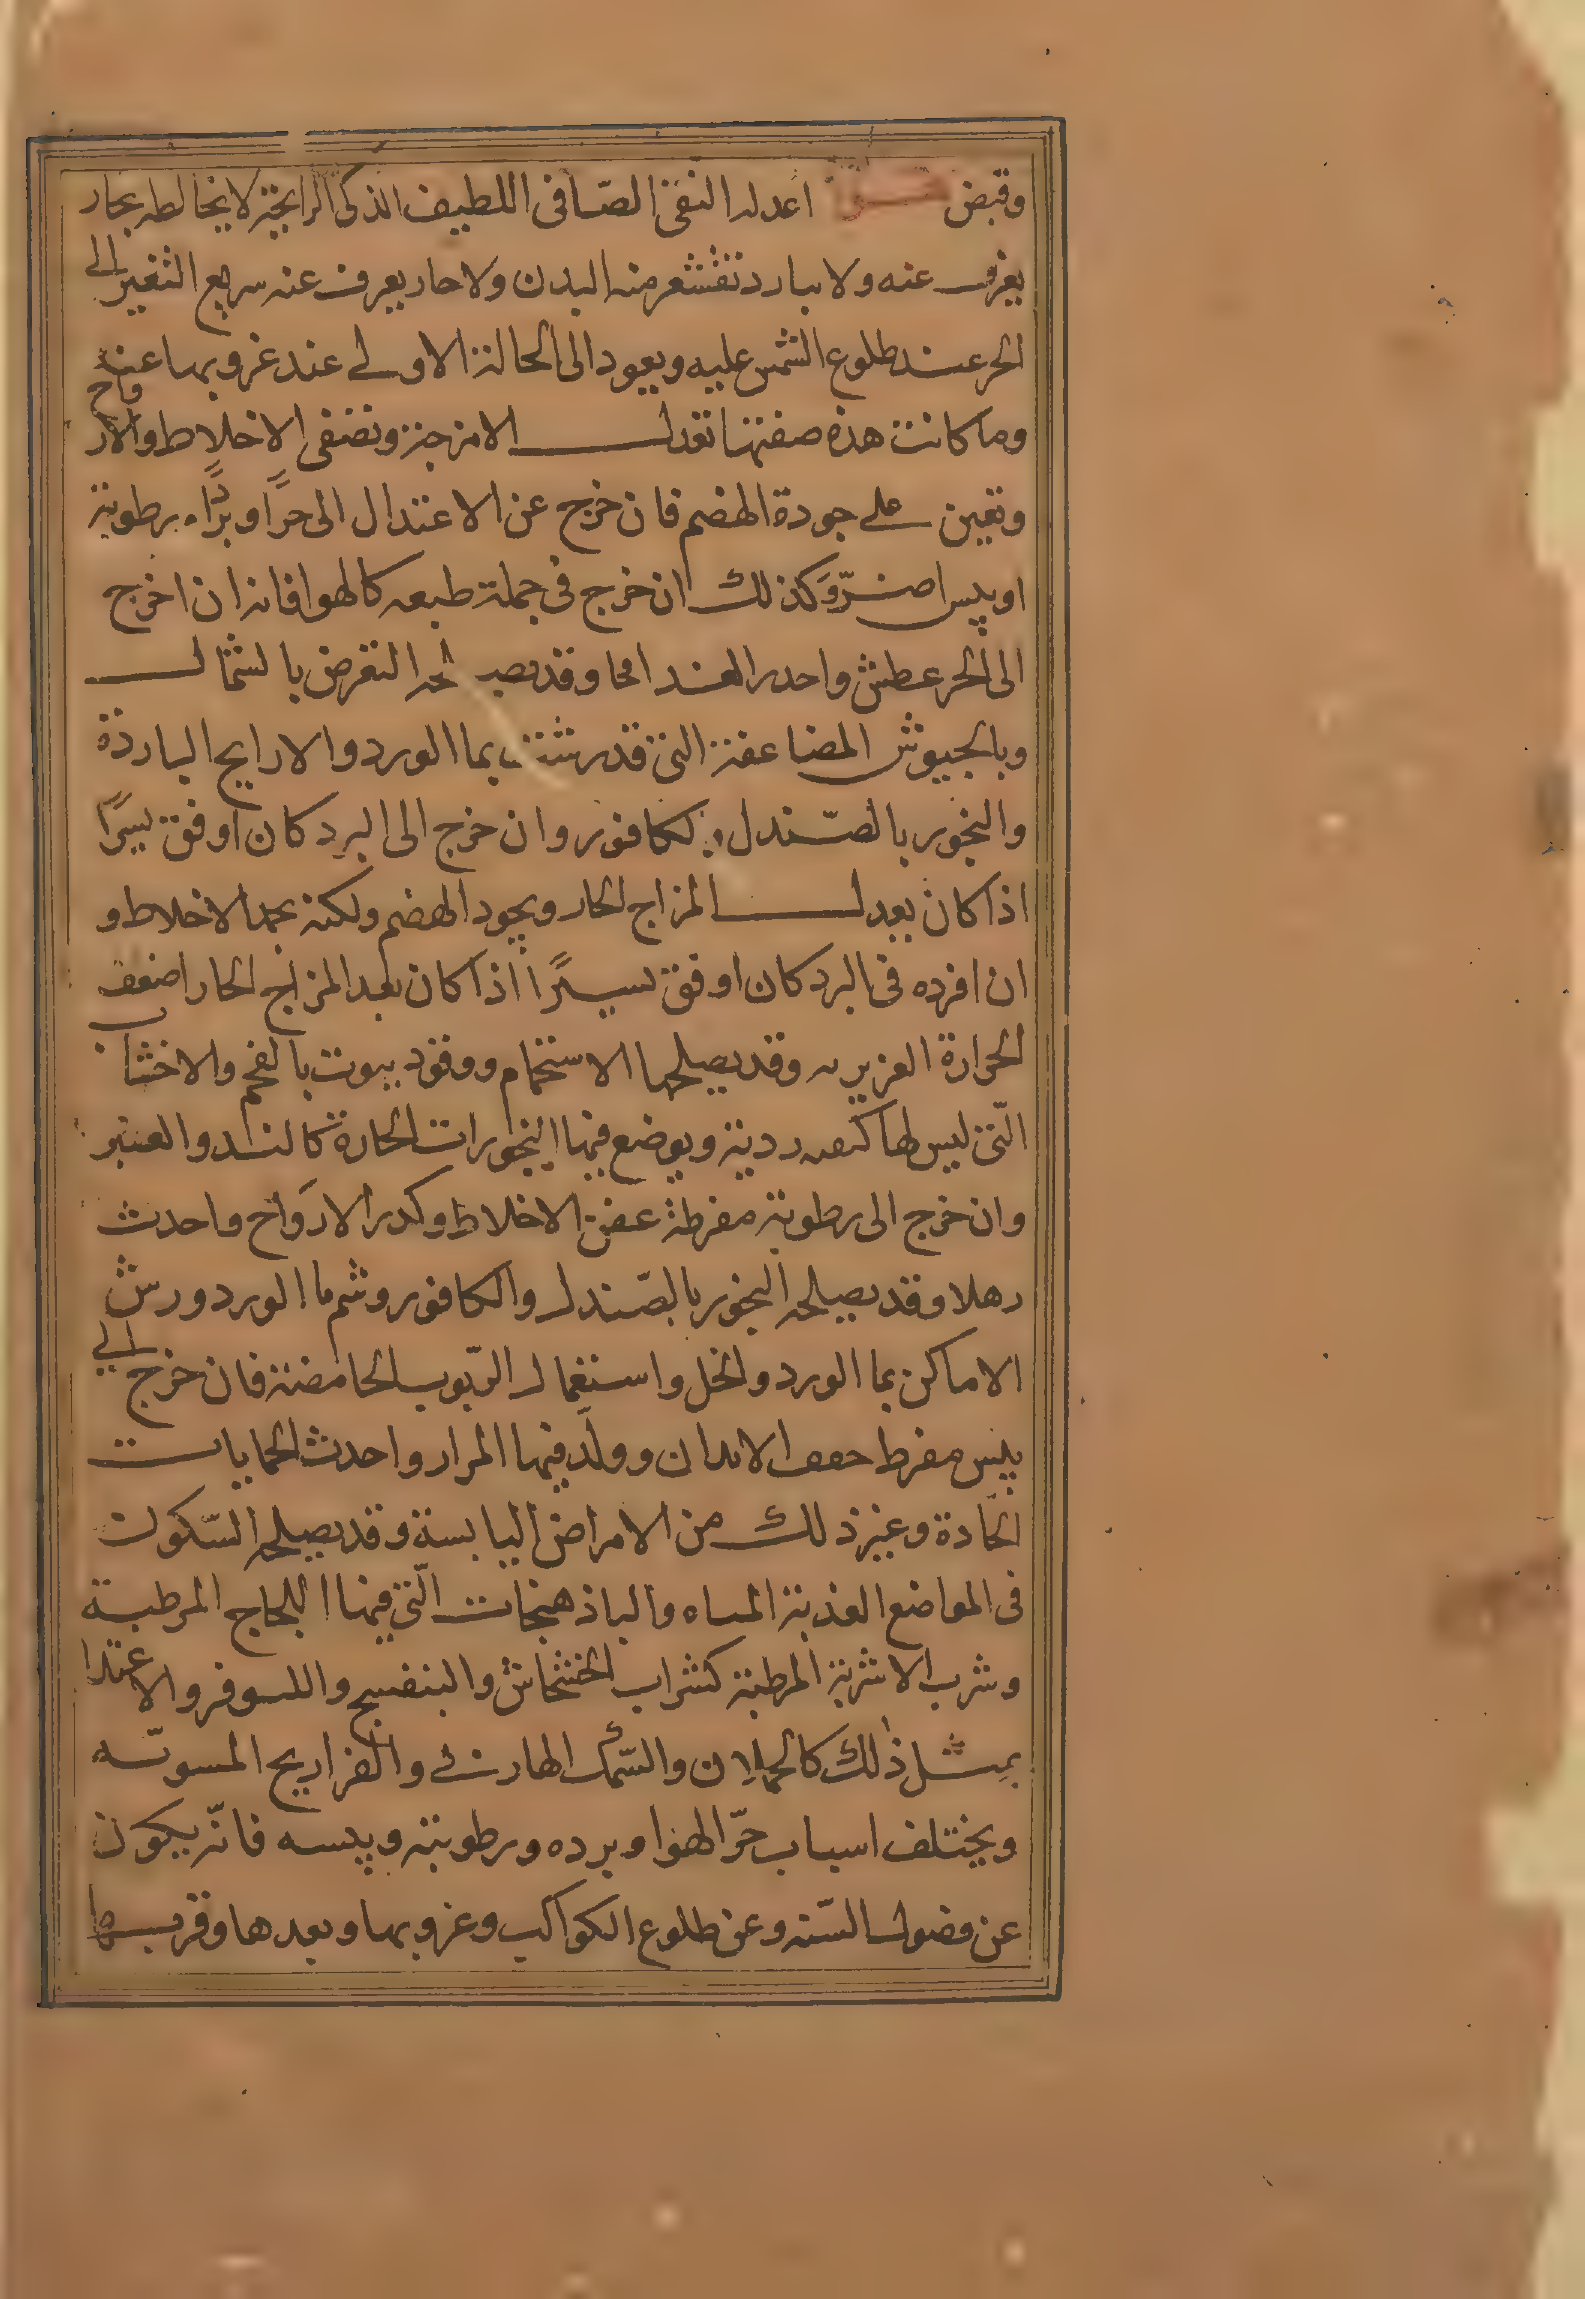 وقبض هوا اعدله النقى الصّافى اللطيف الذكى الرايحة لا يخالطه بخار
يعرف عنه ولا بارد تقشعر منه البدن ولا حار يعرف عنه سريع التغير الى
الحر عند طلوع الشمس عليه ويعود الى الحالة الاولى عند غروبها عنه
وما كانت هذه صفتها تعدل الامزجة وتصفى الاخلاط والارواح
وتعين على جودة الهضم فان خرج عن الاعتدال الى حرًا وبردًا ورطوبة
او يبس اضرّ وكذلك ان خرج فى جملة طبعه كالهوا فانه ان اخرج
الى الحر عطش واحدر وقد التعرض بالشمال
وبالجيوش المضاعفة التى قد رشت بما الورد والارايح الباردة
والبخور بالصّندل والكافور وان خرج الى البرد كان اوفق يسرًا
اذا كان يعدل المزاج الحار ويجود الهضم ولكنه يجمد الاخلاط و
ان افرده فى البرد كان اوفق يسيرًا اذا كان بعد المزاج الحار اضعف
الحرارة الغزيريه وقد يصلحها الاستحمام ووقود بيوت بالفحم والاخشاب
الّتى ليس لها كيفيه ردية ويوضع فيها البخورات الحارة كالند والعنبر
وان خرج الى رطوبة مفرطة عفن الاخلاط وكدر الارواح واحدث
رهلا وقد يصلحه البخور بالصّندل والكافور وشم ما الورد ورش
الاماكن بما الورد والخل واستعمال الرّبوب الحامضة فان خرج الى
يبس مفرط جفف الابدان وولّد فيها المرار واحدث الحمايات
الحّادة وغير ذلك من الامراض اليابسة وقد يصلحه السّكون
فى المواضع العذبة المياه والباذهنجات الّتى فيها الجاج المرطبة
وشرب الاشربة المرطبة كشراب الخشخاش والبنفسج واللسوفر والاغتدا
بمثل ذلك كالحملان والسّمك الهازنى والفراريج المسوته
ويختلف اسباب حرّ الهوا وبرده ورطوبته ويبسه فانّه يكون
عن فصول السّنه وعن طلوع الكواكب وغروبها وبعدها وقربها